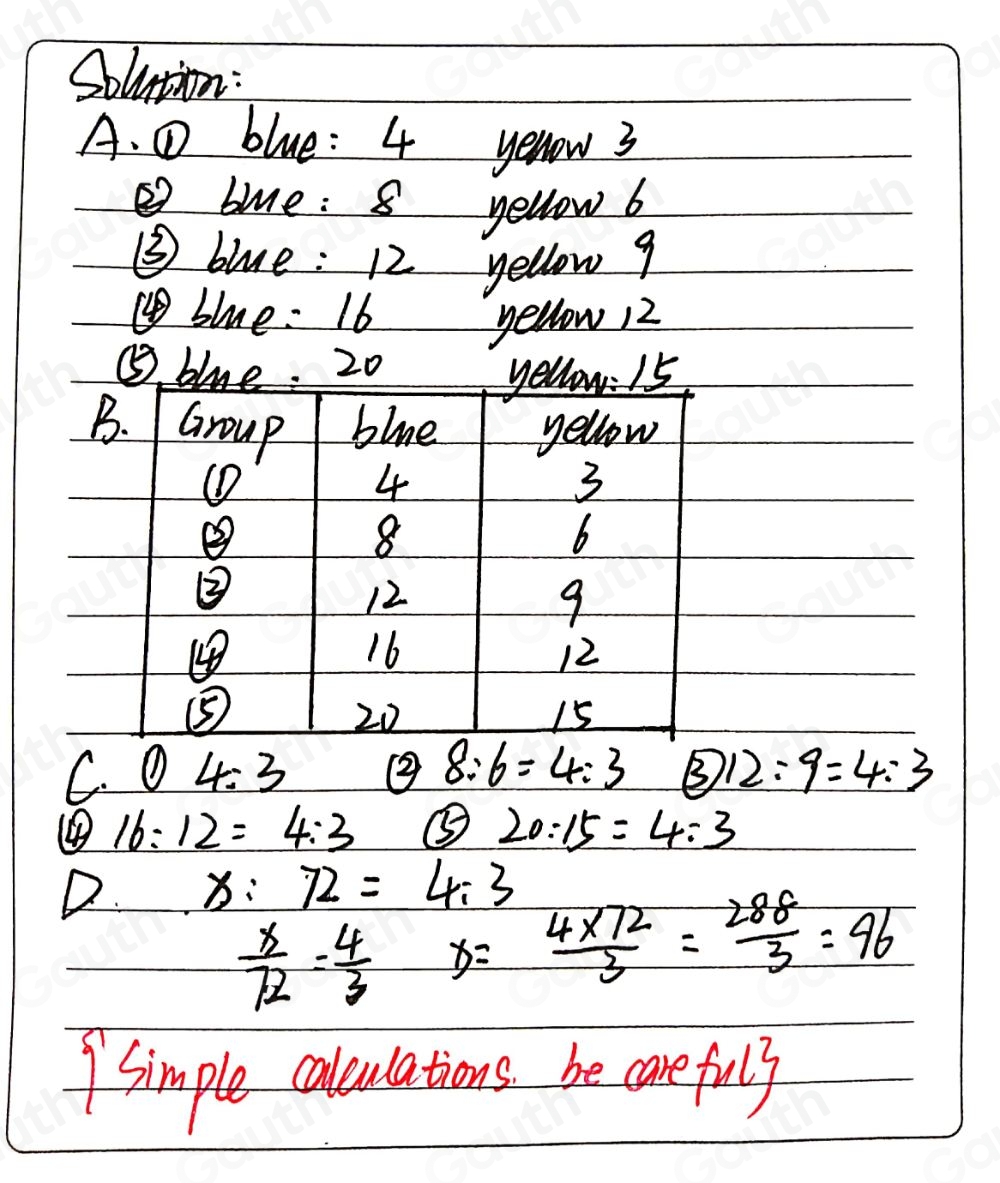 Solution:
A. ① blue: 4 yellow 3
② blue: 8 yellow 6
③ blue: 12 yellow 9
④ blue: 16 yellow 12
⑤ blue: 20 yellow: 15
B. Group blue yellow
① 4 3
② 8 6
③ 12 9
④ 16 12
⑤ 20 15
C. ① 4:3 ② 8:6=4:3 ③ 12:9=4:3
④ 16:12= 4:3 ⑤ 20:15=4:3
D. x: 72 = 4:3
x/72 = 4/3 x= 4×72/3 = 288/3 = 96
{Simple calculations. be careful}